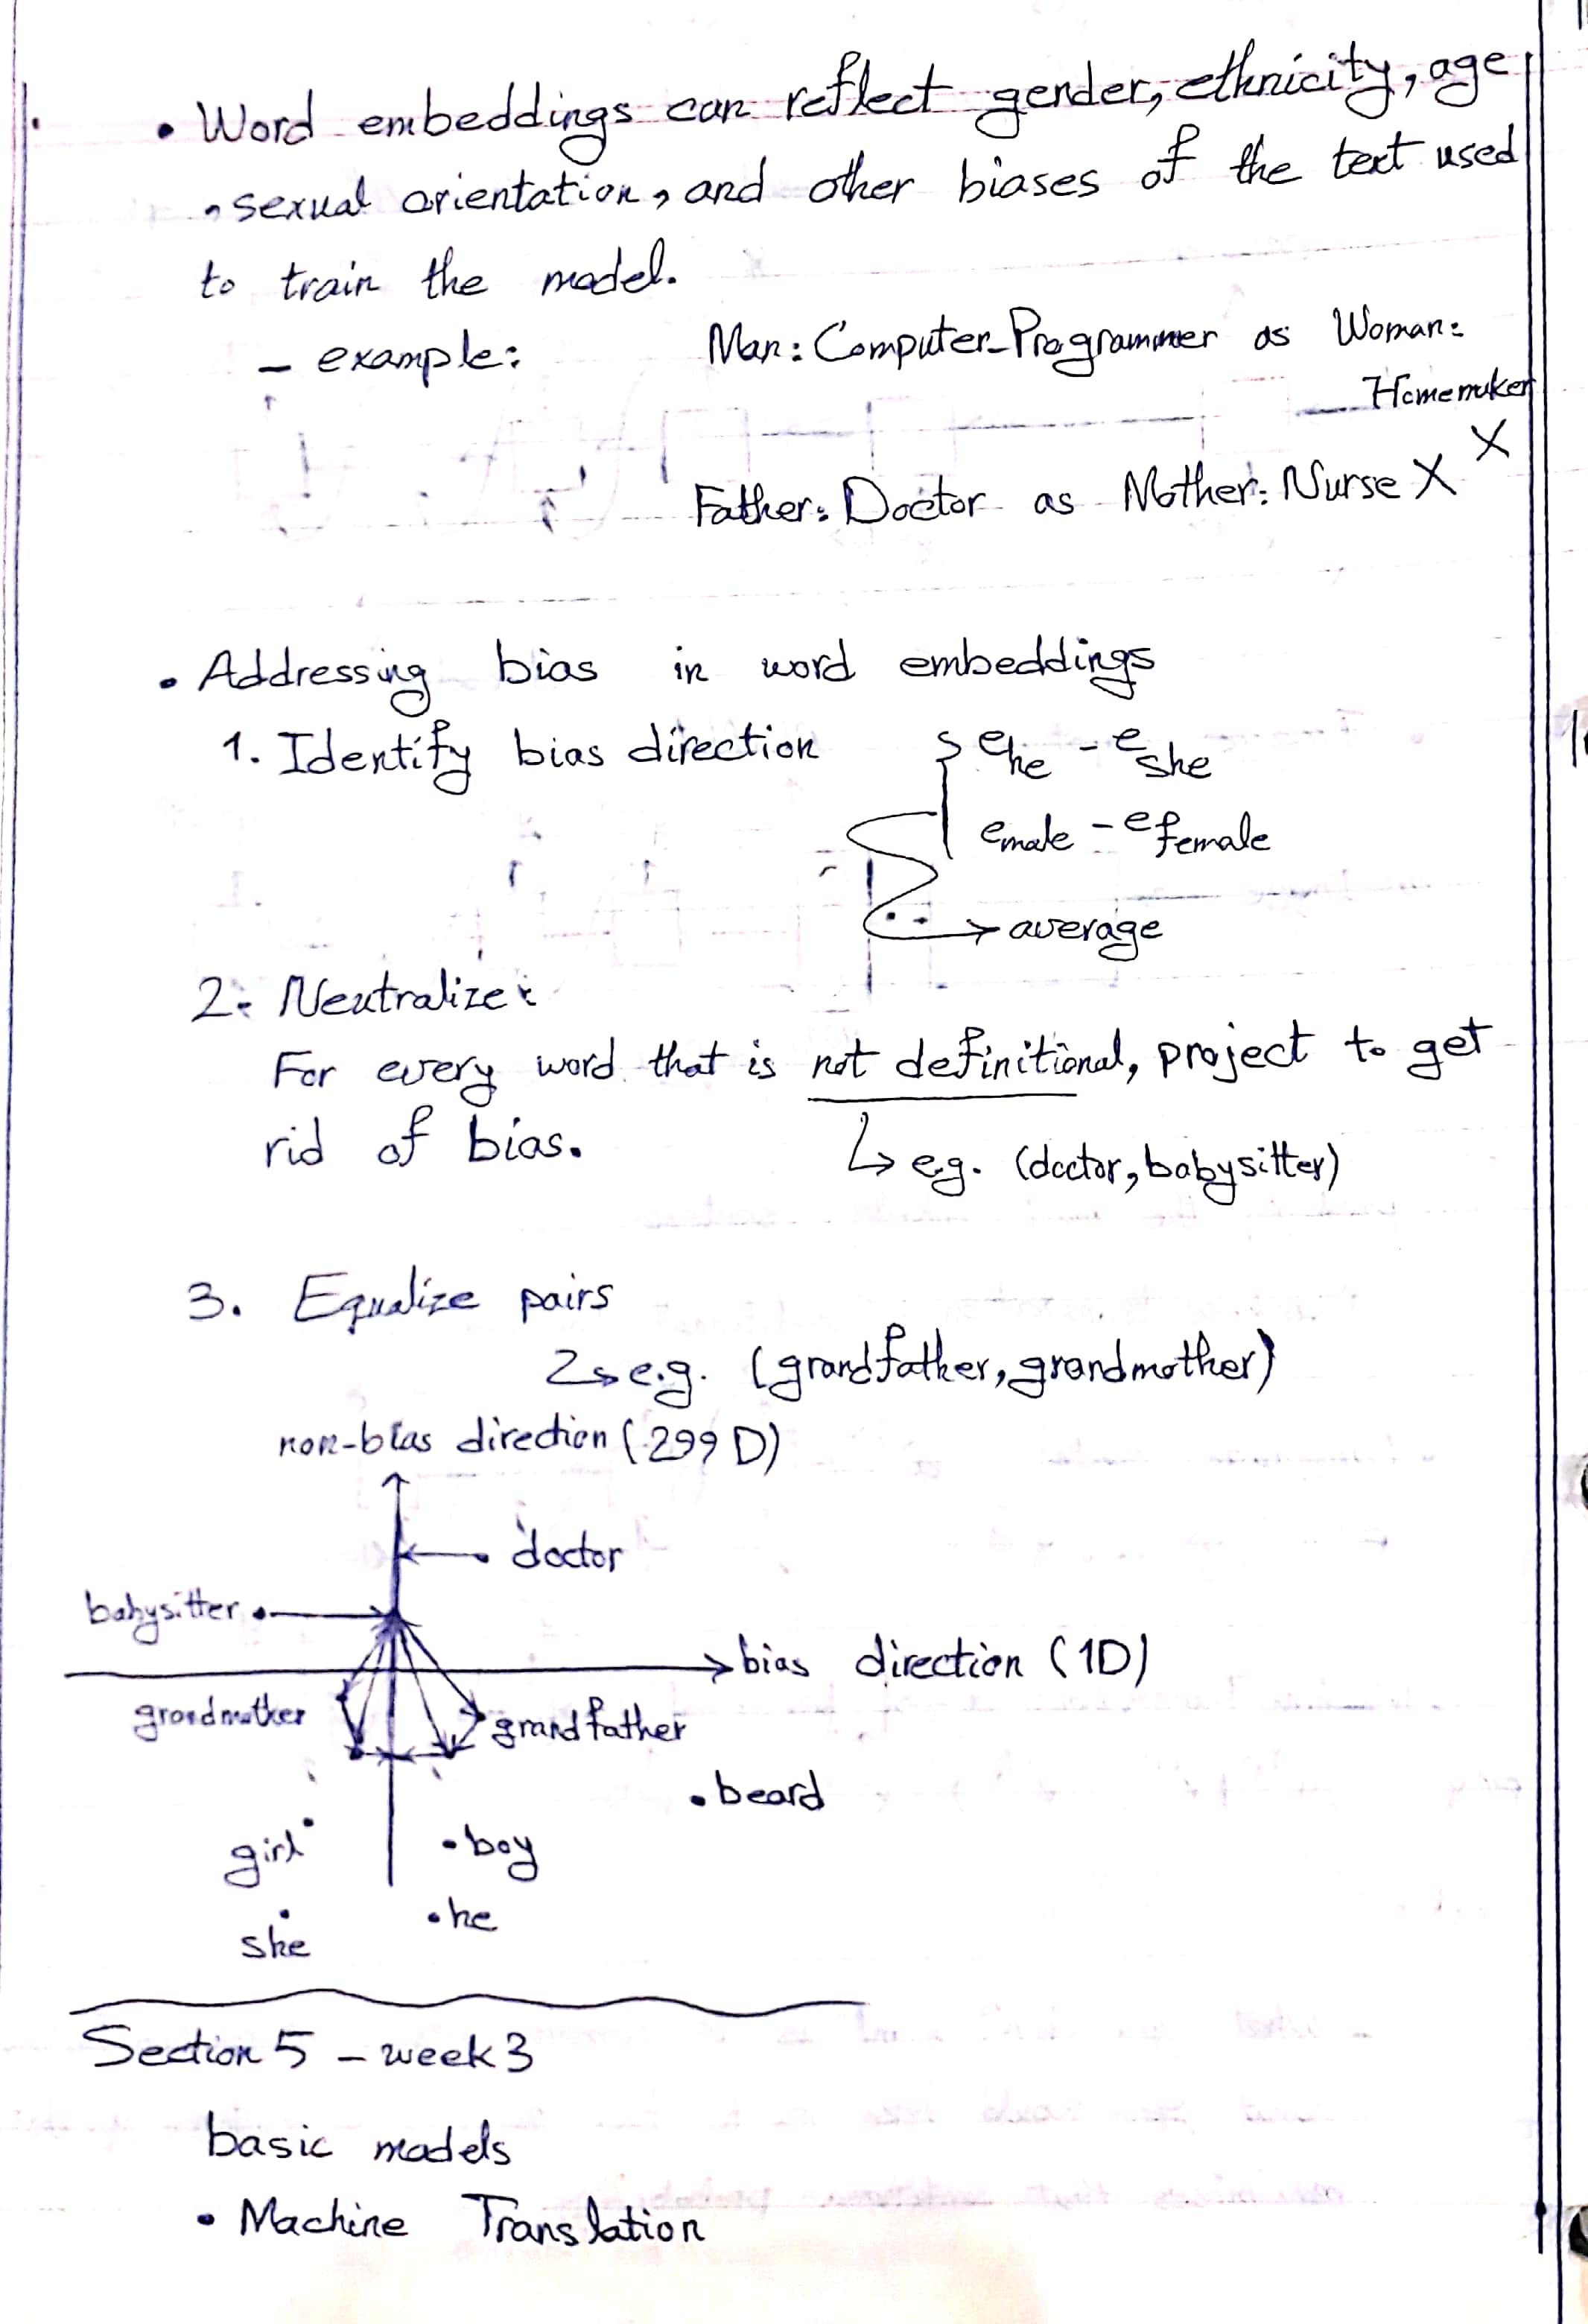 • Word embeddings can reflect gender, ethnicity, age
, sexual orientation, and other biases of the text used
to train the model.
- example: Man: Computer_Programmer as Woman:
Homemaker X
Father: Doctor as Mother: Nurse X
• Addressing bias in word embeddings
1. Identify bias direction e he - e she
e male - e female
→ average
2. Neutralize:
For every word that is not definitional, project to get
rid of bias.
↳ e.g. (doctor, babysitter)
3. Equalize pairs
↳ e.g. (grandfather, grandmother)
non-bias direction (299 D)
doctor
babysitter
bias direction (1D)
grandmother
grandfather
beard
girl
boy
he
she
Section 5 - week 3
basic models
• Machine Translation